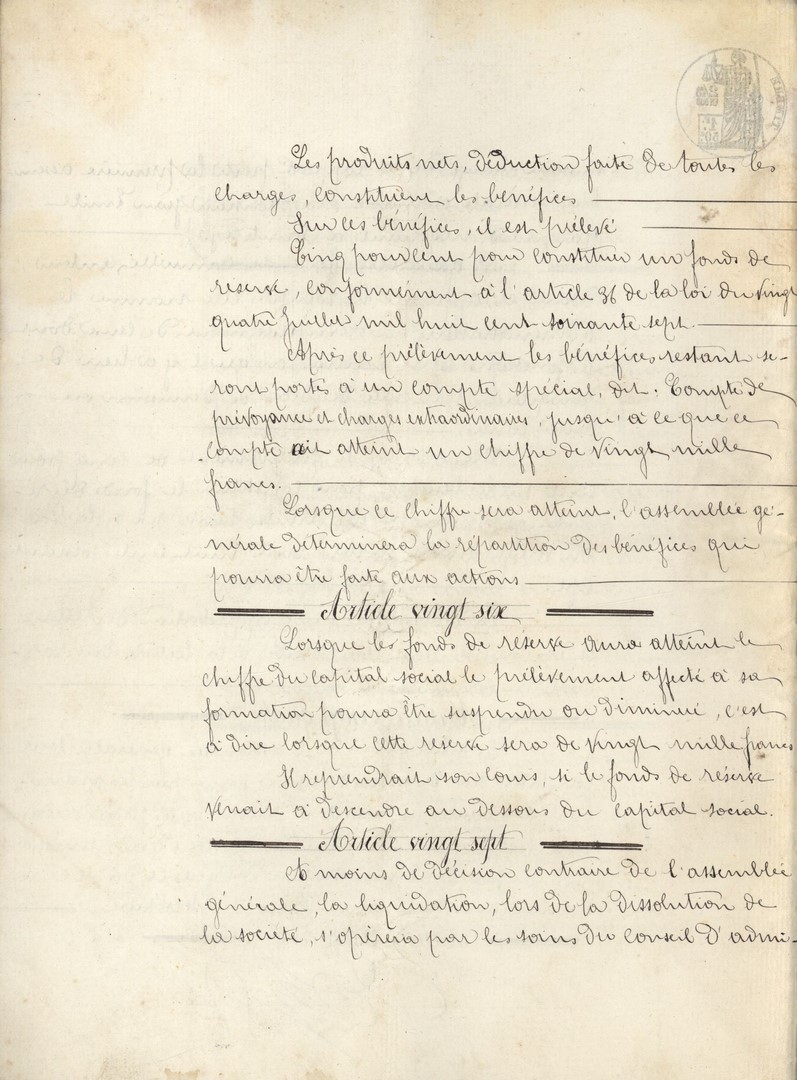 Les produits nets, déduction faite de toutes les
charges, constituent les bénéfices
Sur ces bénéfices, il est prélevé
Cinq pour cent pour constituer un fonds de
reserve, conformément à l'article 36 de la loi du vingt
quatre Juillet mil huit cent soixante sept.
Après ce prélèvement les bénéfices restant se-
ront portés à un compte spécial, dit. Compte de
prévoyance et charges extraordinaires, jusqu'à ce que ce
compte ait atteint un chiffre de vingt mille
francs.
Lorsque ce chiffre sera atteint, l'assemblée gé-
nérale determinera la répartition des bénéfices qui
pourra être faite aux actions
Article vingt six
Lorsque les fonds de réserve aura atteint le
chiffre du capital social le prélèvement affecté à sa
formation pourra être suspendu ou diminué, c'est
à dire lorsque cette reserve sera de vingt mille francs
Il reprendrait son cours, si le fonds de réserve
venait à descendre au dessous du capital social.
Article vingt sept
A moins de décision contraire de l'assemblée
générale, la liquidation, lors de la dissolution de
la société, s'opérera par les soins du Conseil d'admi-